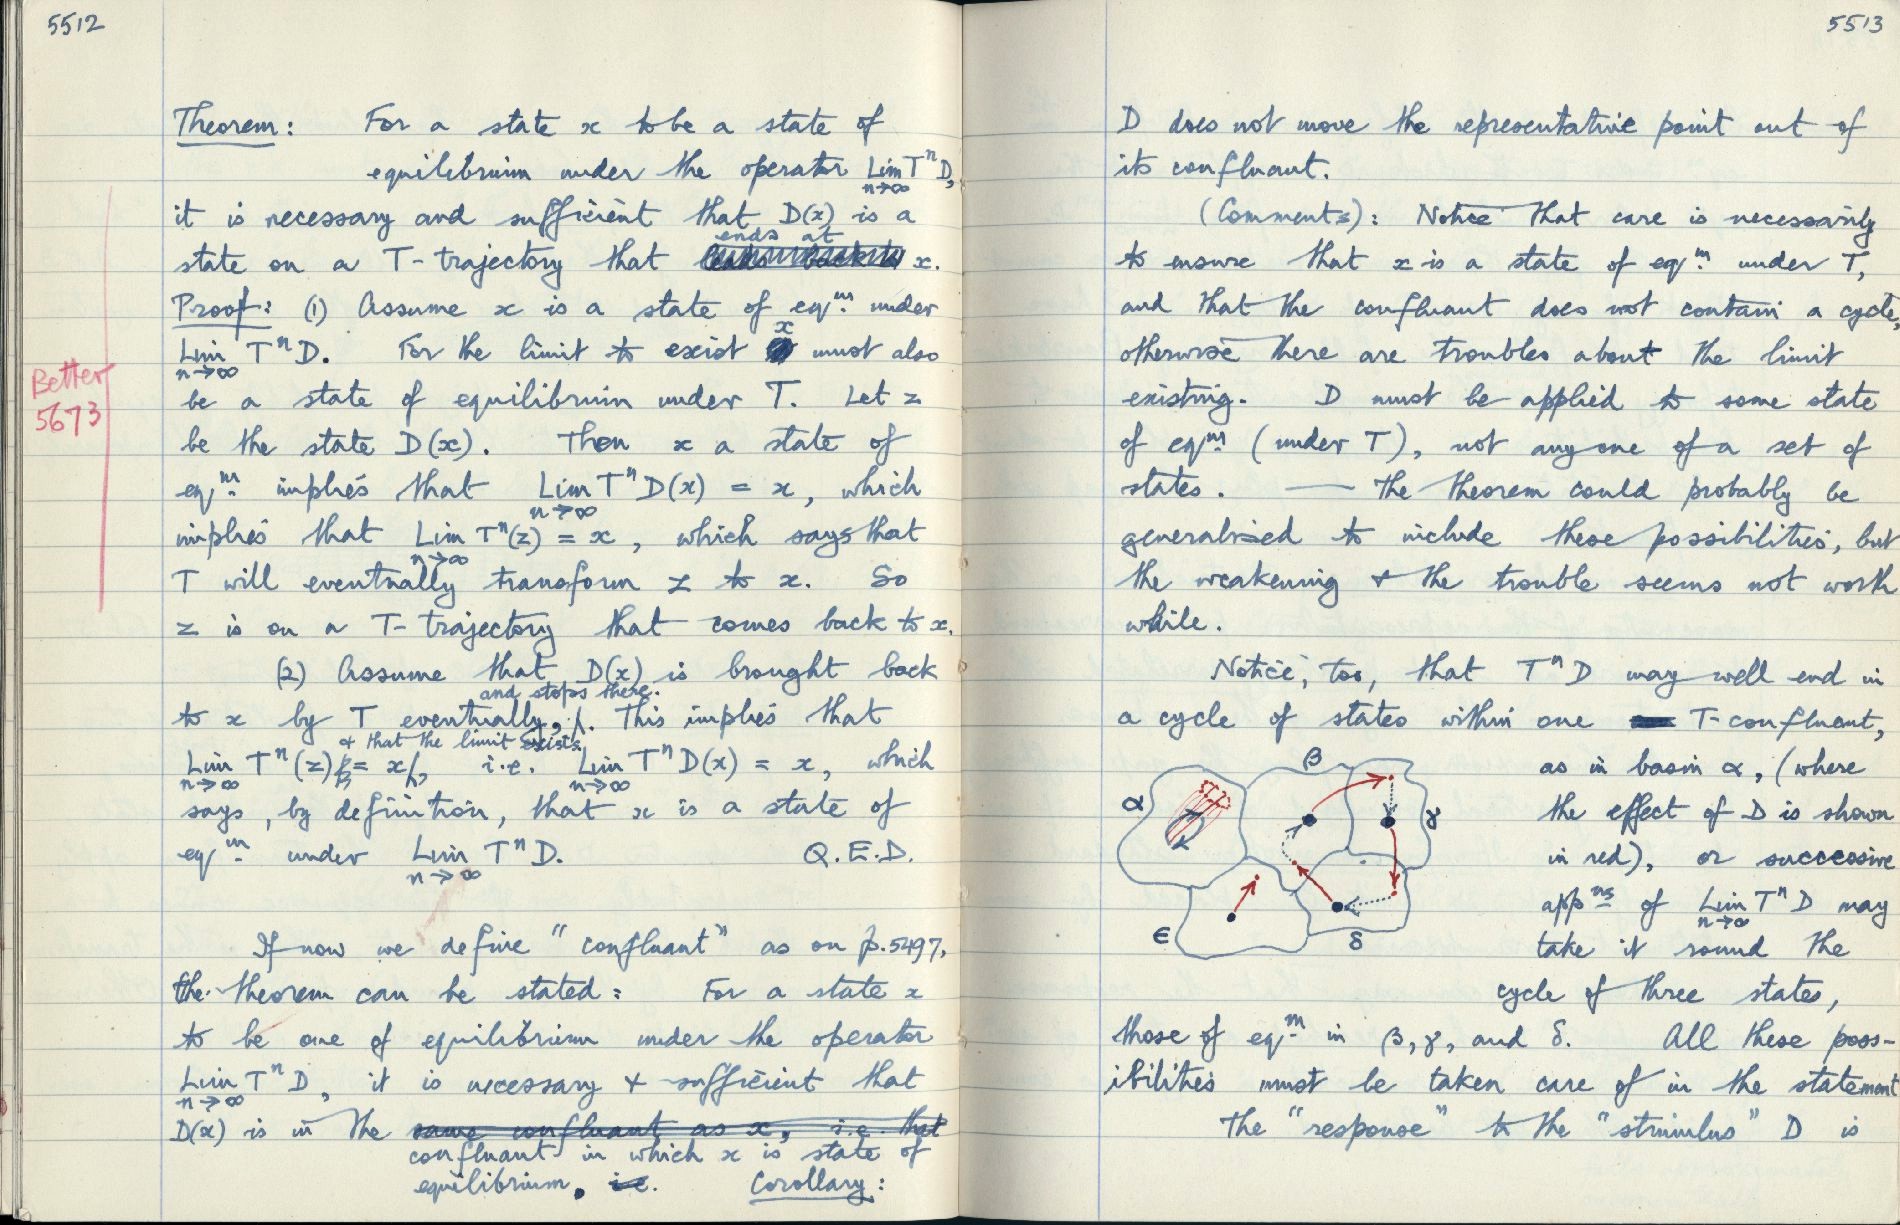 5512
Theorem: For a state x to be a state of
equilibrium under the operator Lim n→∞ TⁿD,
it is necessary and sufficient that D(x) is a
ends at
state on a T-trajectory that leads back to x.
Proof: (1) Assume x is a state of eqᵐ. under
Lim n→∞ TⁿD. For the limit to exist x must also
be a state of equilibrium under T. Let z
Better
5673
be the state D(x). Then x a state of
eqᵐ. implies that Lim n→∞ TⁿD(x) = x, which
implies that Lim n→∞ Tⁿ(z) = x, which says that
T will eventually transform z to x. So
z is on a T-trajectory that comes back to x.
(2) Assume that D(x) is brought back
and stops there.
to x by T eventually, . This implies that
& that the limit exists
Lim n→∞ Tⁿ(z) = x, i.e. Lim n→∞ TⁿD(x) = x, which
says, by definition, that x is a state of
eqᵐ. under Lim n→∞ TⁿD. Q.E.D.
If now we define "confluant" as on p.5497,
the theorem can be stated: For a state x
to be one of equilibrium under the operator
Lim n→∞ TⁿD, it is necessary & sufficient that
D(x) is in the same confluant as x, i.e. that
confluant in which x is state of
equilibrium. i.e. Corollary:
5513
D does not move the representative point out of
its confluant.
(Comments): Notice that care is necessarily
to ensure that x is a state of eqᵐ. under T,
and that the confluant does not contain a cycle,
otherwise there are troubles about the limit
existing. D must be applied to some state
of eqᵐ (under T), not any one of a set of
states. — The theorem could probably be
generalised to include these possibilities, but
the weakening & the trouble seems not worth
while.
Notice, too, that TⁿD may well end in
a cycle of states within one T-confluant,
as in basin α, (where
the effect of D is shown
in red), or successive
appⁿˢ of Lim n→∞ TⁿD may
take it round the
cycle of three states,
α
β
γ
ϵ
δ
those of eqᵐ. in β, γ, and δ. All these poss-
ibilities must be taken care of in the statement
The "response" to the "stimulus" D is